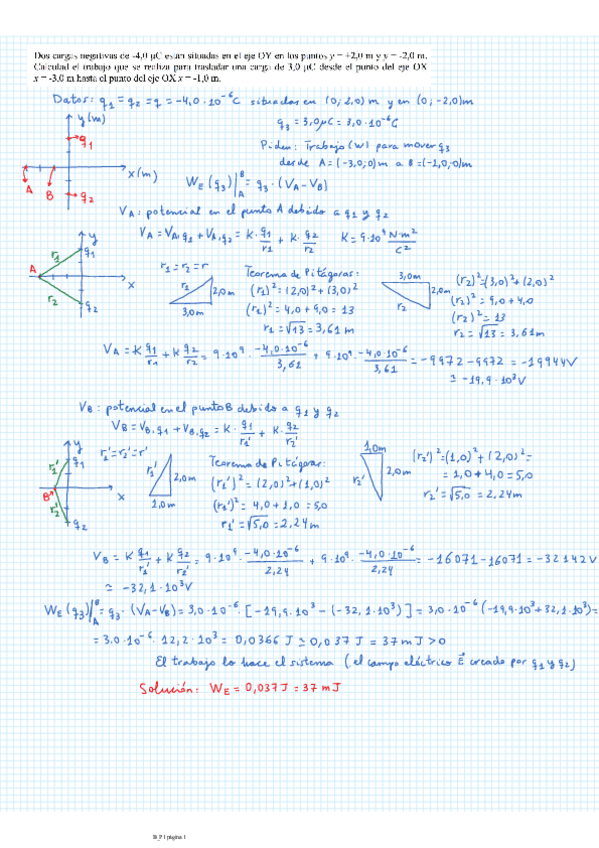 Dos cargas negativas de -4,0 μC están situadas en el eje OY en los puntos y = +2,0 m y y = -2,0 m.
Calculad el trabajo que se realiza para trasladar una carga de 3,0 μC desde el punto del eje OX
x = -3,0 m hasta el punto del eje OX x = -1,0 m.
Datos: q₁ = q₂ = q = -4,0·10⁻⁶C situadas en (0; 2,0)m y en (0; -2,0)m
y(m)
q₁
q₃ = 3,0μC = 3,0·10⁻⁶C
Piden: Trabajo (W) para mover q₃
x(m)
desde A=(-3,0;0)m a B=(-1,0;0)m
A B q₂
W_E(q₃)|_A^B = q₃·(V_A-V_B)
V_A: potencial en el punto A debido a q₁ y q₂
y
q₁
V_A = V_A,q₁ + V_A,q₂ = K·q₁/r₁ + K·q₂/r₂ K=9·10⁹ N·m²/C²
A r₁ r₂ x q₂
r₁=r₂=r
r₁ 2,0m 3,0m
Teorema de Pitágoras:
(r₁)²=(2,0)²+(3,0)²
(r₁)²=4,0+9,0=13
r₁=√13=3,61m
3,0m 2,0m r₂
(r₂)²=(3,0)²+(2,0)²
(r₂)²=9,0+4,0
(r₂)²=13
r₂=√13=3,61m
V_A = K q₁/r₁ + K q₂/r₂ = 9·10⁹·-4,0·10⁻⁶/3,61 + 9·10⁹·-4,0·10⁻⁶/3,61 = -9972-9972 = -19944V
≃ -19,9·10³V
V_B: potencial en el punto B debido a q₁ y q₂
V_B = V_B,q₁ + V_B,q₂ = K·q₁/r₁' + K·q₂/r₂'
y
q₁
r₁' B r₂' x q₂
r₁'=r₂'=r'
r₁' 2,0m 1,0m
Teorema de Pitágoras:
(r₁')²=(2,0)²+(1,0)²
(r₁')²=4,0+1,0=5,0
r₁'=√5,0=2,24m
1,0m 2,0m r₂'
(r₂')²=(1,0)²+(2,0)²=
=1,0+4,0=5,0
r₂'=√5,0=2,24m
V_B = K q₁/r₁' + K q₂/r₂' = 9·10⁹·-4,0·10⁻⁶/2,24 + 9·10⁹·-4,0·10⁻⁶/2,24 = -16071-16071 = -32142V
≃ -32,1·10³V
W_E(q₃)|_A^B = q₃·(V_A-V_B) = 3,0·10⁻⁶·[-19,9·10³-(-32,1·10³)] = 3,0·10⁻⁶(-19,9·10³+32,1·10³)=
=3,0·10⁻⁶·12,2·10³ = 0,0366 J ≃ 0,037 J = 37 mJ > 0
El trabajo lo hace el sistema (el campo eléctrico E⃗ creado por q₁ y q₂)
Solución: W_E = 0,037J = 37 mJ